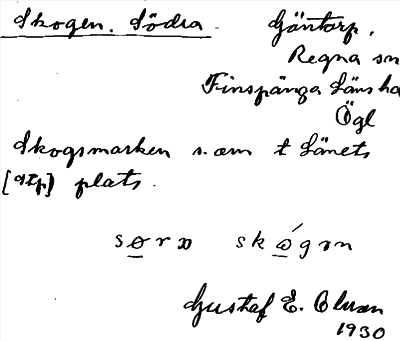 Skogen, Södra. Göntorp,
Regna sn
Finspånga Läns hd
Ögl
Skogsmarken s. om t Länets
plats.
Gustaf E.
1930